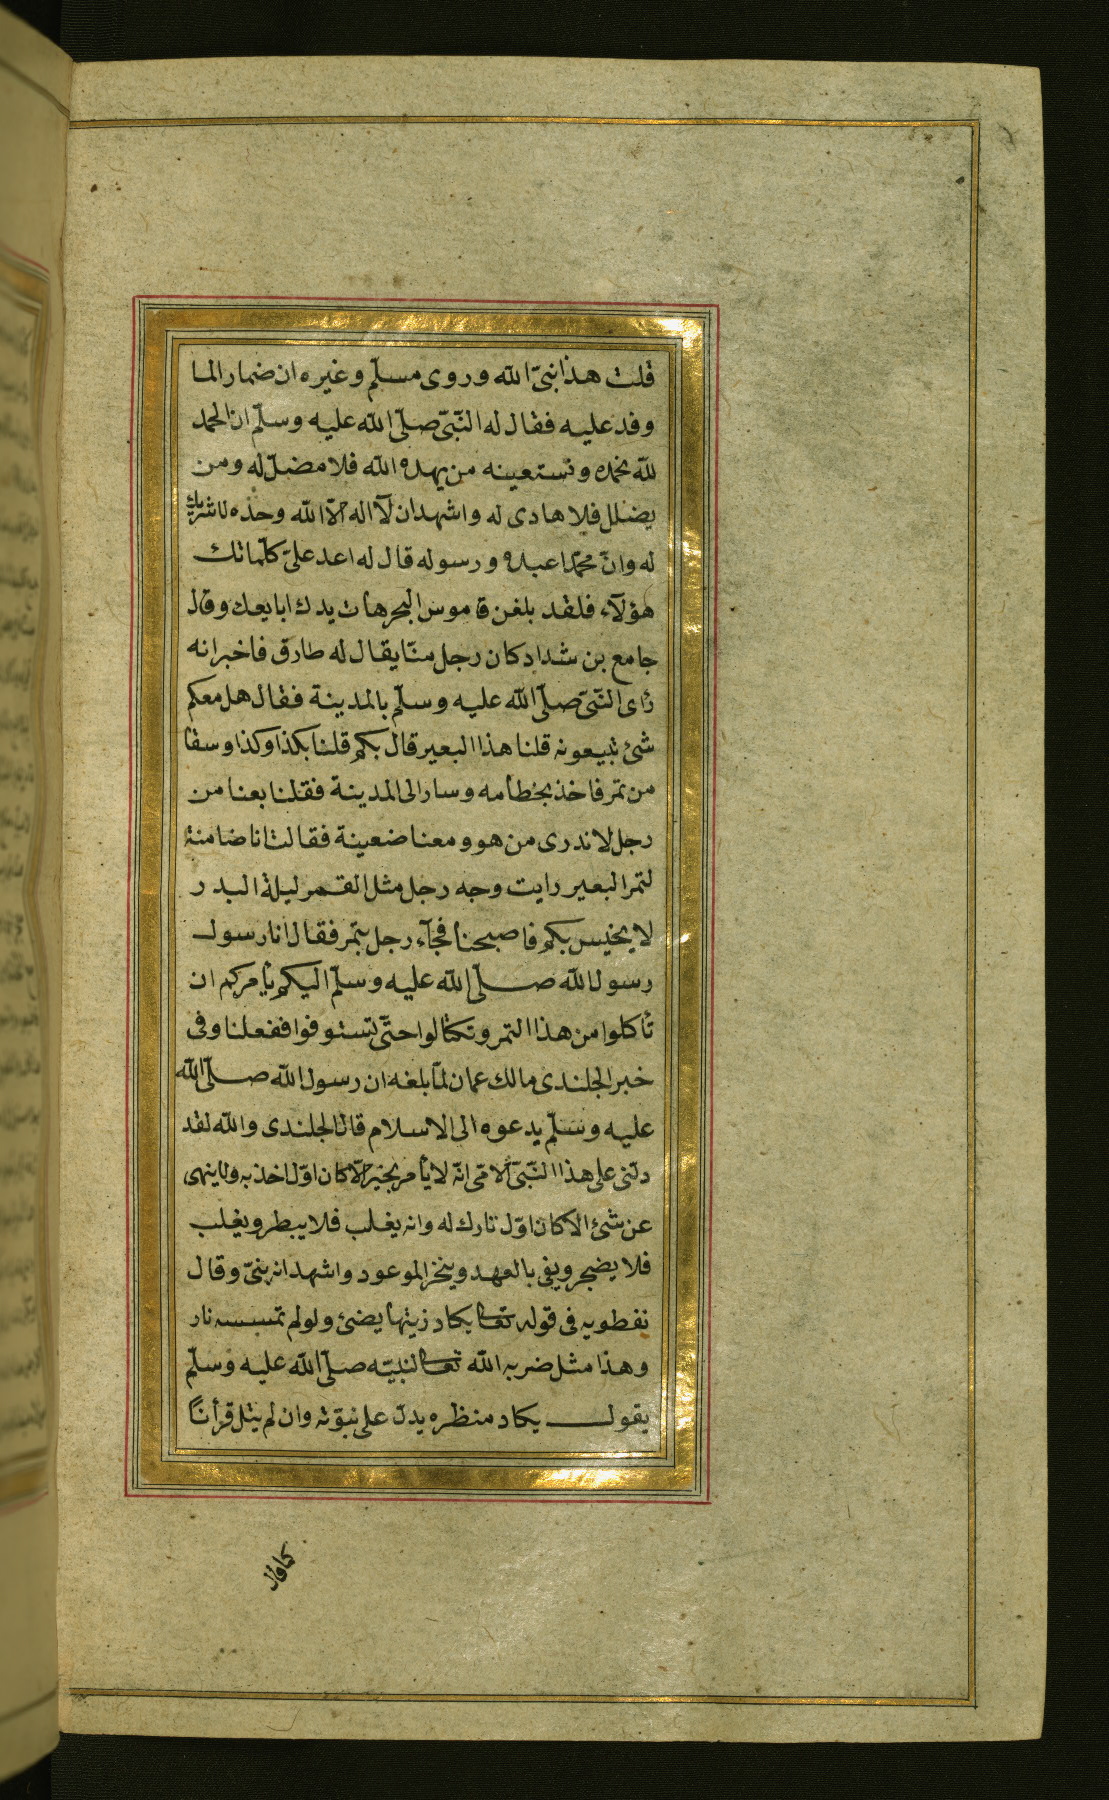 قلت هذا نبىّ الله وروى مسلم وغيره ان ضمارا لما
وفد عليه فقال له النّبىّ صلّى الله عليه وسلّم ان الحمد
لله نحمده ونستعينه من يهده الله فلا مضلّ له ومن
يضلل فلا هادى له واشهد ان لآ اله الّا الله وحده لا شريك
له وانّ محمّدا عبده ورسوله قال له اعد علىّ كلماتك
هؤلآء فلقد بلغن قاموس البحر هات يدك ابايعك وقال
جامع بن شداد كان رجل منّا يقال له طارق فاخبر انه
رأى النّبىّ صلّى الله عليه وسلّم بالمدينة فقال هل معكم
شئ تبيعونه قلنا هذا البعير قال بكم قلنا بكذا وكذا وسقا
من تمر فاخذ بخطامه وسار الى المدينة فقلنا بعنا من
رجل لا ندرى من هو ومعنا ضعينة فقالت انا ضامنة
لتمر البعير رايت وجه رجل مثل القمر ليلة البدر
لا يخيس بكم فاصبحنا فجآء رجل بتمر فقال انا رسول
رسول الله صلّى الله عليه وسلّم اليكم يأمركم ان
تأكلوا من هذا التمر وتكتالوا حتّى تستوفوا ففعلنا وفى
خبر الجلندى مالك عمان لمّا بلغه ان رسول الله صلّى الله
عليه وسلّم يدعوه الى الاسلام قال الجلندى والله لقد
دلّنى على هذا النّبىّ الامّى انّه لا يأمر بخير الّا كان اوّل اخذ به ولا ينهى
عن شئ الا كان اوّل تارك له وانه يغلب فلا يبطر ويغلب
فلا يضجر ويفى بالعهد وينجز الموعود واشهد انه نبىّ وقال
نفطويه فى قوله تعا يكاد زيتها يضئ ولو لم تمسسه نار
وهذا مثل ضربه الله تعا لنبيّه صلّى الله عليه وسلّم
يقول يكاد منظره يدلّ على نبوّته وان لم يتل قرأنًا
كما قال